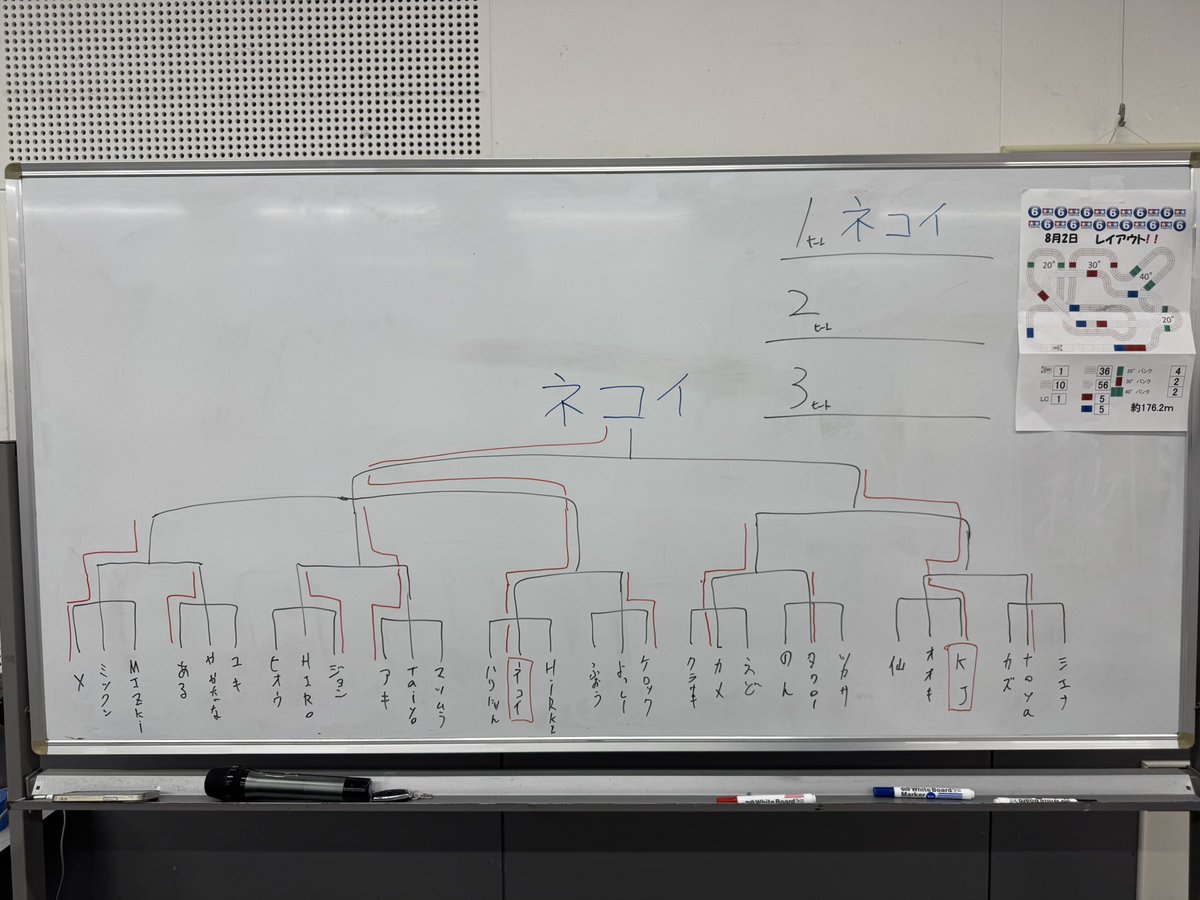 1ヒート ネコイ
2ヒート
3ヒート
ネコイ
8月2日 レイアウト!!
20° 30° 40°
20°
1 36 20° バンク 4
10 56 30° バンク 2
LC 1 5 40° バンク 2
5 約176.2m
X
ミックン
MIZki
ある
ユキ
ヒオウ
HIRO
ジョン
アキ
Taiyo
マツムラ
ハリにゃん
ネコイ
HiRK2
よっしー
ケロック
クラサキ
カメ
えど
のん
タクロー
ツカサ
仙
オオキ
KJ
カズ
toya
シエナ
White Board
White Board Marker